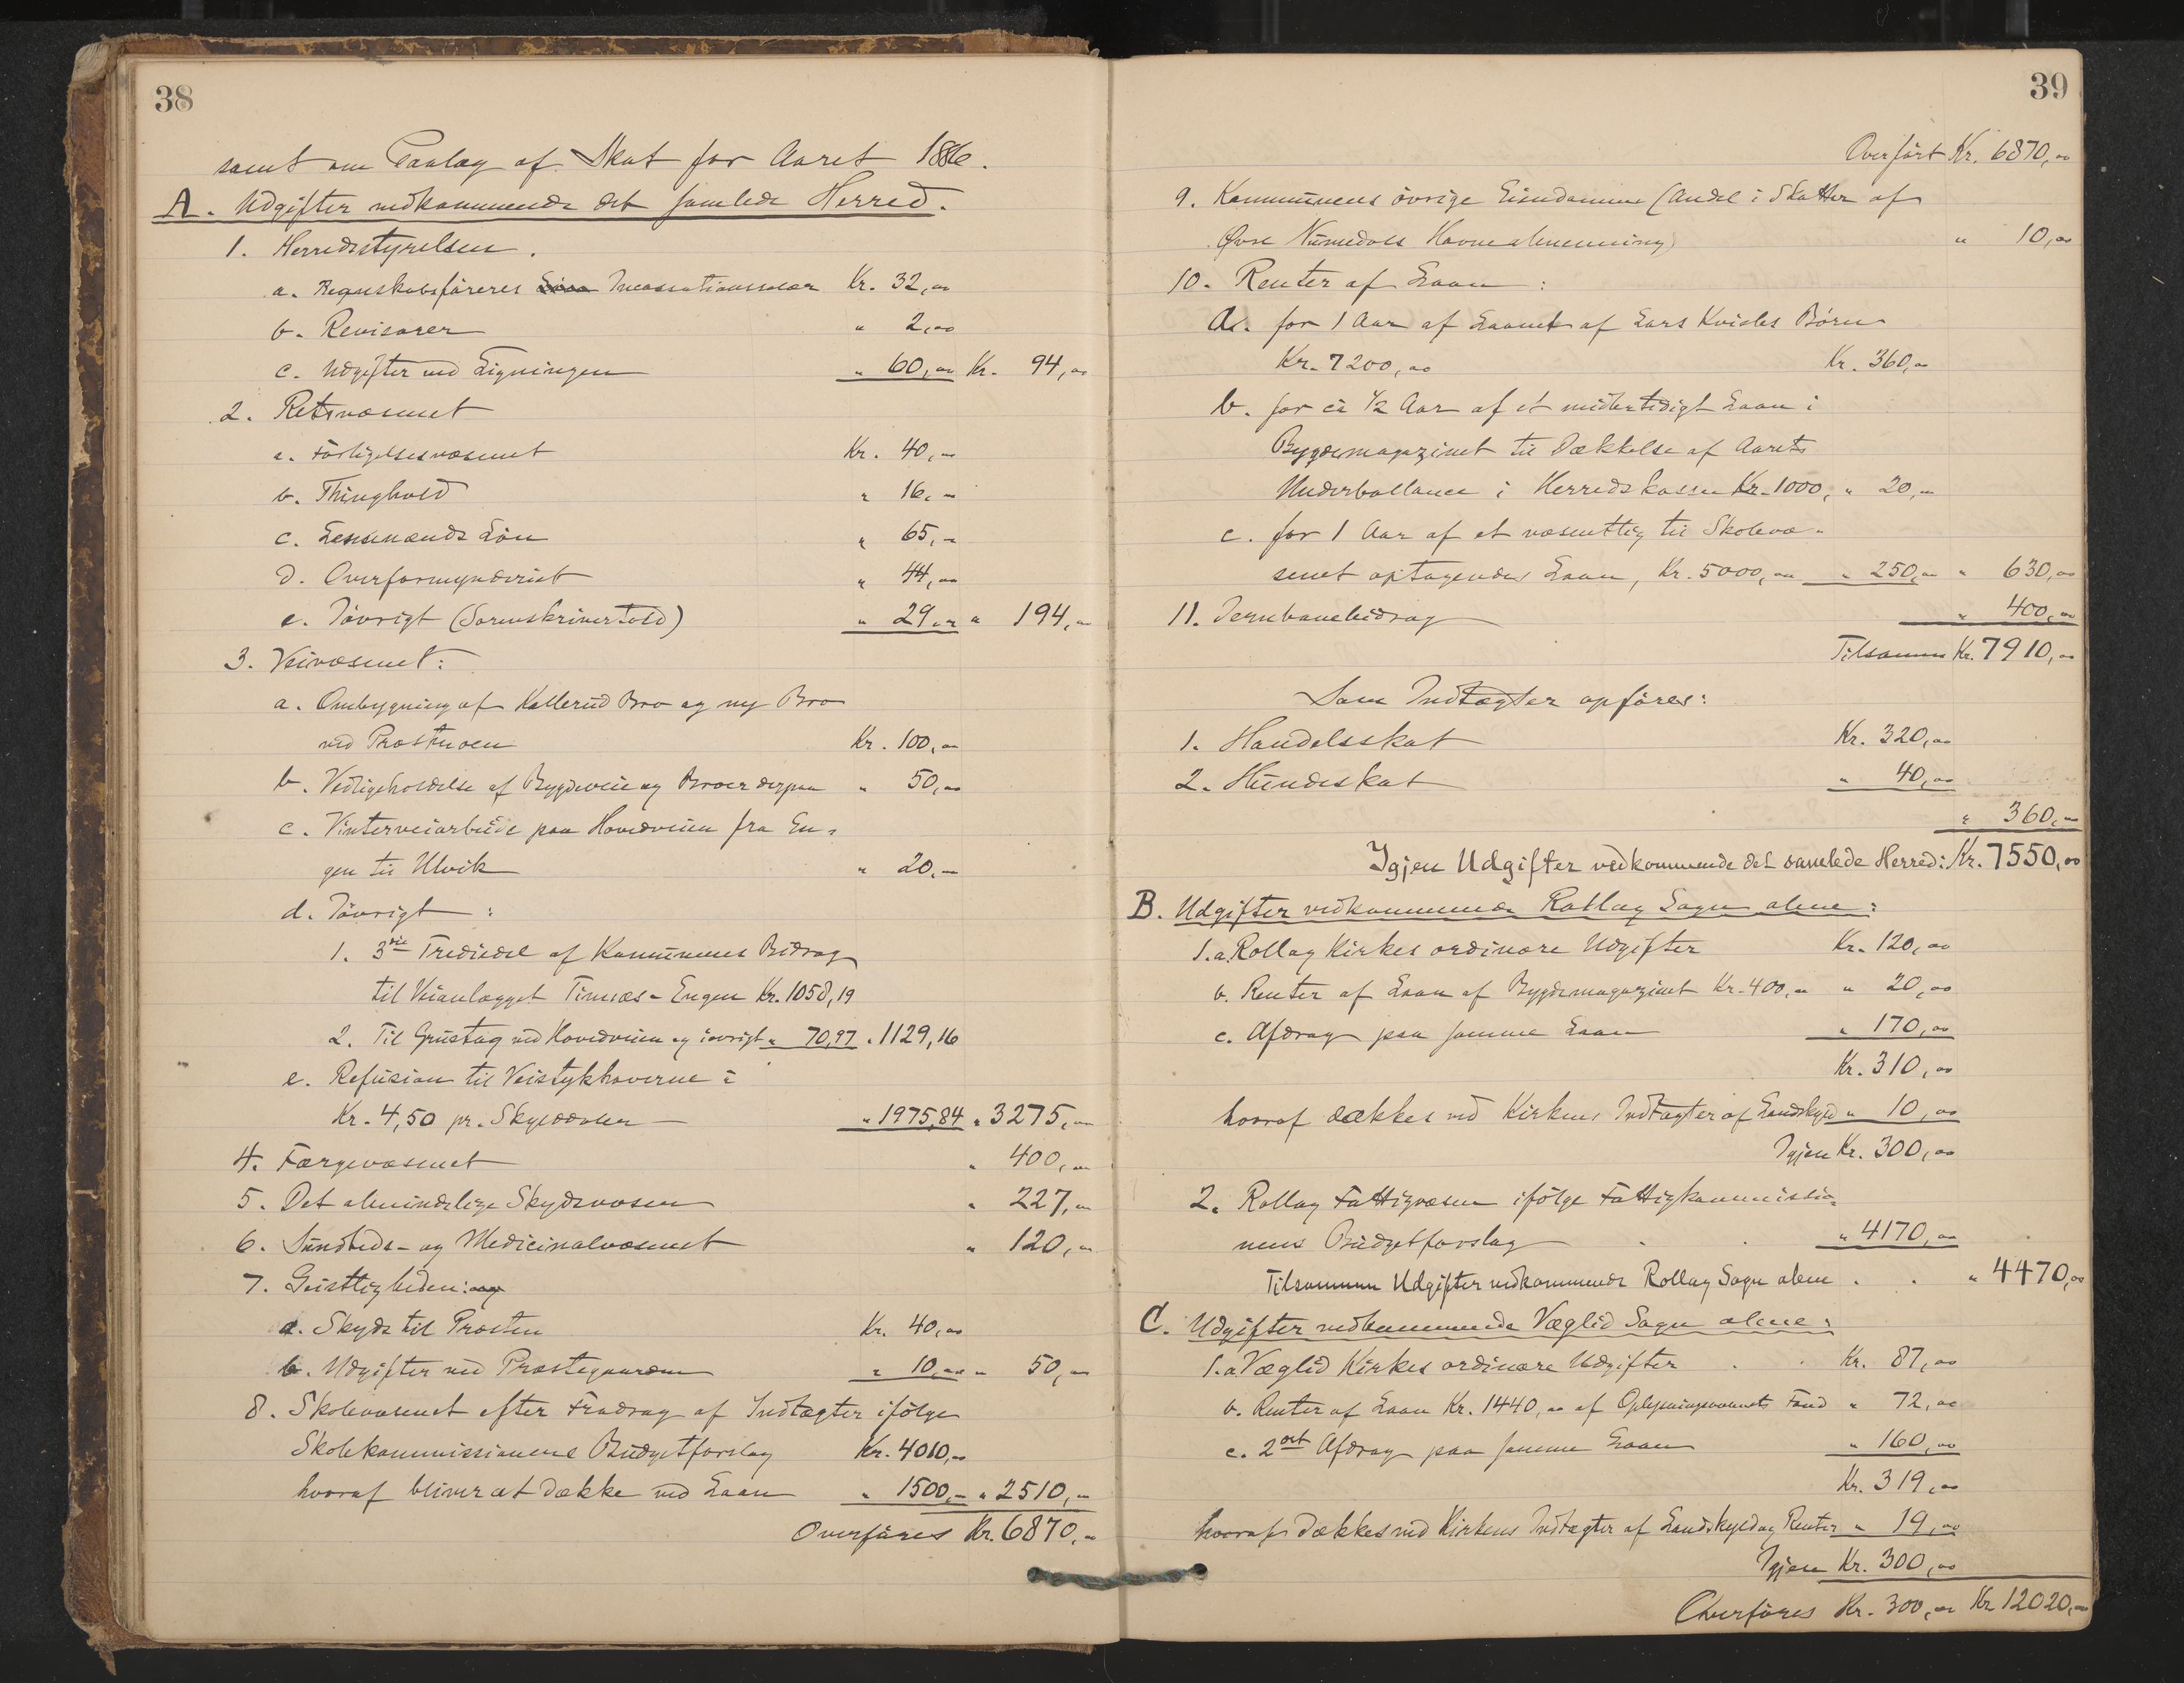 38
samt om Paalæg af Skat for Aaret 1886.
A. Udgifter vedkommende det samlede Herred.
1. Herredsstyrelsen.
a. Regnskabsføreres Incassationssalær Kr. 32,00
b. Revisorer " 2,00
c. Udgifter ved Ligningen " 60,00 Kr. 94,00
2. Retsvæsenet
a. Forligelsesvæsenet Kr. 40,00
b. Thinghold " 16,00
c. Lensmænds Løn " 65,00
d. Overformynderiet " 44,00
e. Iøvrigt (Sorenskrivertold) " 29,00 " 194,00
3. Veivæsenet:
a. Ombygning af Kallerud Bro og ny Bro
ved Prostmoen Kr. 100,00
b. Vedligeholdelse af Bygdeveie og Broer derpaa " 50,00
c. Vinterveiarbeide paa Hovedveien fra En-
gen til Ulvik " 20,00
d. Iøvrigt:
1. 3die Trediedel af Kommunens Bidrag
til Veianlægget Timnæs-Engen Kr. 1058,19
2. Til Grustag ved Hovedveien og iøvrigt " 70,97 " 1129,16
e. Refusion til Veistykhaverne à
Kr. 4,50 pr. Skylddaler " 1975,84 " 3275,00
4. Færgevæsenet " 400,00
5. Det almindelige Skydsvæsen " 227,00
6. Sundheds- og Medicinalvæsenet " 120,00
7. Geistligheden:
a. Skyds til Prosten Kr. 40,00
b. Udgifter ved Prestegaarden " 10,00 " 50,00
8. Skolevæsenet efter Fradrag af Indtægter ifølge
Skolekommissionens Budgetforslag Kr. 4010,00
hvoraf bliver at dække ved Laan " 1500,00 " 2510,00
Overføres Kr. 6870,00
39
Overført Kr. 6870,00
9. Kommunens øvrige Eiendomme (Andel i Skatter af
Øvre Numedals Havnealmenning) " 10,00
10. Renter af Laan:
a. for 1 Aar af Laanet af Lars Kvisles Børn
Kr. 7200,00 Kr. 360,00
b. for ca ½ Aar af et midlertidigt Laan i
Bygdemagazinet til Dækkelse af Aarets
Underballance i Herredskassen Kr. 1000, " 20,00
c. for 1 Aar af et væsentlig til Skolevæ-
senet optagendes Laan, Kr. 5000,00 " 250,00 " 630,00
11. Jernbanebidrag " 400,00
Tilsammen Kr. 7910,00
Som Indtægter opføres:
1. Handelsskat Kr. 320,00
2. Hundeskat " 40,00
" 360,00
Igjen Udgifter vedkommende det samlede Herred: Kr. 7550,00
B. Udgifter vedkommende Rollag Sogn alene:
1. a. Rollag Kirkes ordinære Udgifter Kr. 120,00
b. Renter af Laan af Bygdemagazinet Kr. 400,00 " 20,00
c. Afdrag paa samme Laan " 170,00
Kr. 310,00
hvoraf dækkes ved Kirkens Indtægter af Landskyld " 10,00
Igjen Kr. 300,00
2. Rollag Fattigvæsen ifølge Fattigkommissio-
nens Budgetforslag " 4170,00
Tilsammen Udgifter vedkommende Rollag Sogn alene . . " 4470,00
C. Udgifter vedkommende Væglid Sogn alene:
1. a Væglid Kirkes ordinære Udgifter . . Kr. 87,00
b. Renter af Laan Kr. 1440,00 af Oplysningsvæsenets Fond " 72,00
c. 2det Afdrag paa samme Laan " 160,00
Kr. 319,00
hvoraf dækkes ved Kirkens Indtægter af Landskyld og Renter " 19,00
Igjen Kr. 300,00
Overføres Kr. 300,00 Kr 12020,00